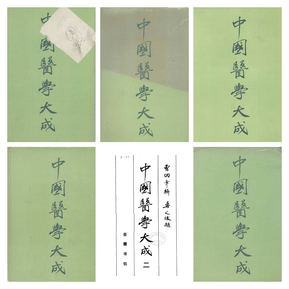 中國醫學大成
中國醫學大成
中國醫學大成
中國醫學大成
曹炳章輯
中國醫學大成 二
岳麓书社
中國醫學大成